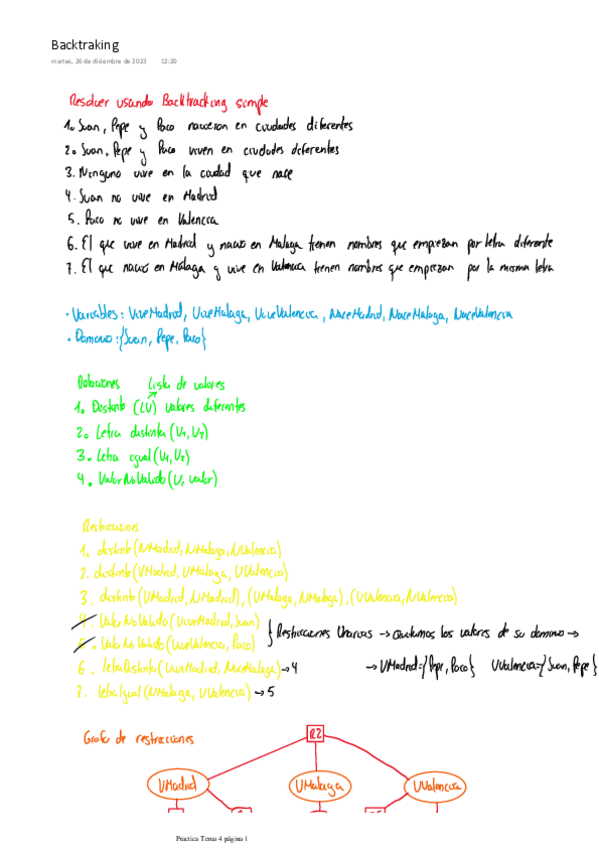 Backtraking
martes, 26 de diciembre de 2023 12:20
Resolver usando Backtracking simple
1. Juan, Pepe y Paco nacieron en ciudades diferentes
2. Juan, Pepe y Paco viven en ciudades diferentes
3. Ninguno vive en la ciudad que nace
4. Juan no vive en Madrid
5. Paco no vive en Valencia
6. El que vive en Madrid y nacio en Malaga tienen nombres que empiezan por letra diferente
7. El que nacio en Málaga y vive en Valencia tienen nombres que empiezan por la misma letra
· Variables: ViveMadrid, ViveMalaga, ViveValencia, NaceMadrid, NaceMalaga, NaceValencia
· Dominio: {Juan, Pepe, Paco}
Relaciones Lista de valores
1. Distinto (LV) valores diferentes
2. Letra distinta (V1, V2)
3. Letra igual (V1, V2)
4. ValorNoValido (V, valor)
Restricciones
1. distinto (NMadrid, NMalaga, NValencia)
2. distinto (VMadrid, VMalaga, VValencia)
3. distinto (VMadrid, NMadrid), (VMalaga, NMalaga), (VValencia, NValencia)
4. ValorNoValido (ViveMadrid, Juan)
5. ValorNoValido (ViveValencia, Paco)
} Restricciones Unarias → quitamos los valores de su dominio →
6. letraDistinta (ViveMadrid, NaceMalaga) → 4
→ VMadrid = {Pepe, Paco} VValencia = {Juan, Pepe}
7. letraIgual (NMalaga, VValencia) → 5
Grafo de restricciones
R2
VMadrid VMalaga VValencia
Practica Tema 4 página 1